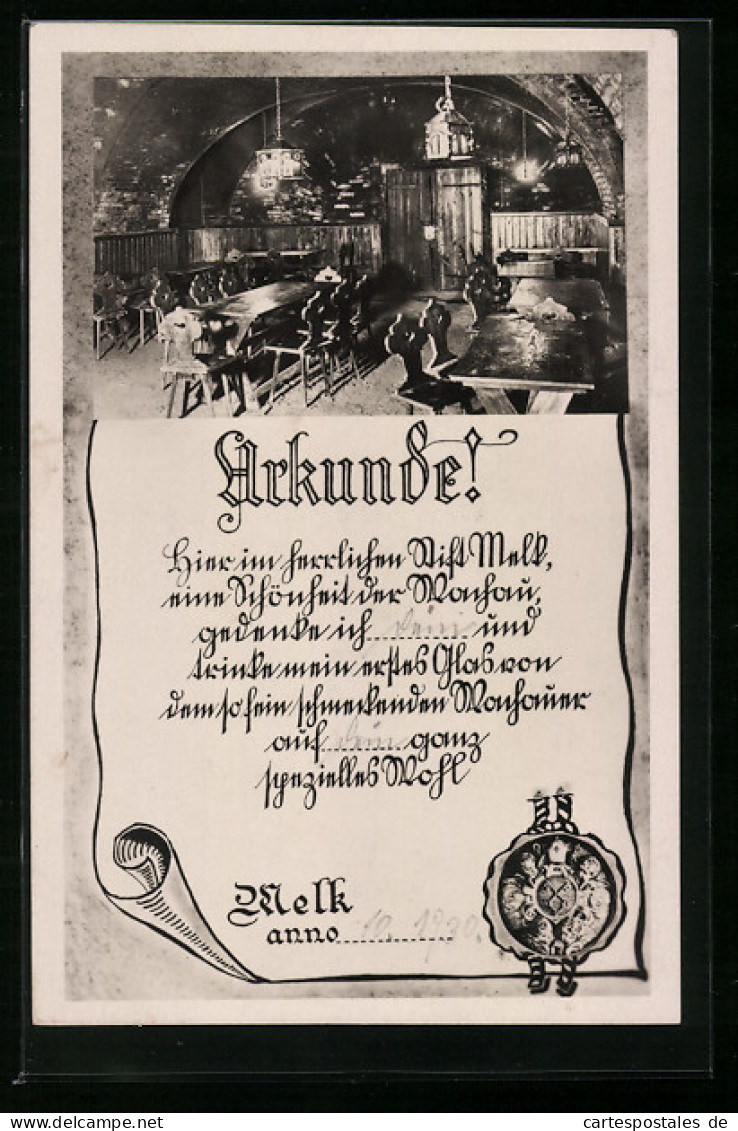 Urkunde!
Hier im herrlichen Stift Melk,
eine Schönheit der Wachau,
gedenke ich dein und
trinke mein erstes Glas von
dem so fein schmeckenden Wachauer
auf dein ganz
spezielles Wohl
Melk
anno
delcampe.net
cartespostales de